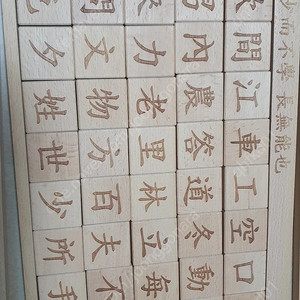 少而不學 長無能也
間江車工空口
男內農答道冬動
力老里林立每
文物方百夫不
夕姓世少所手